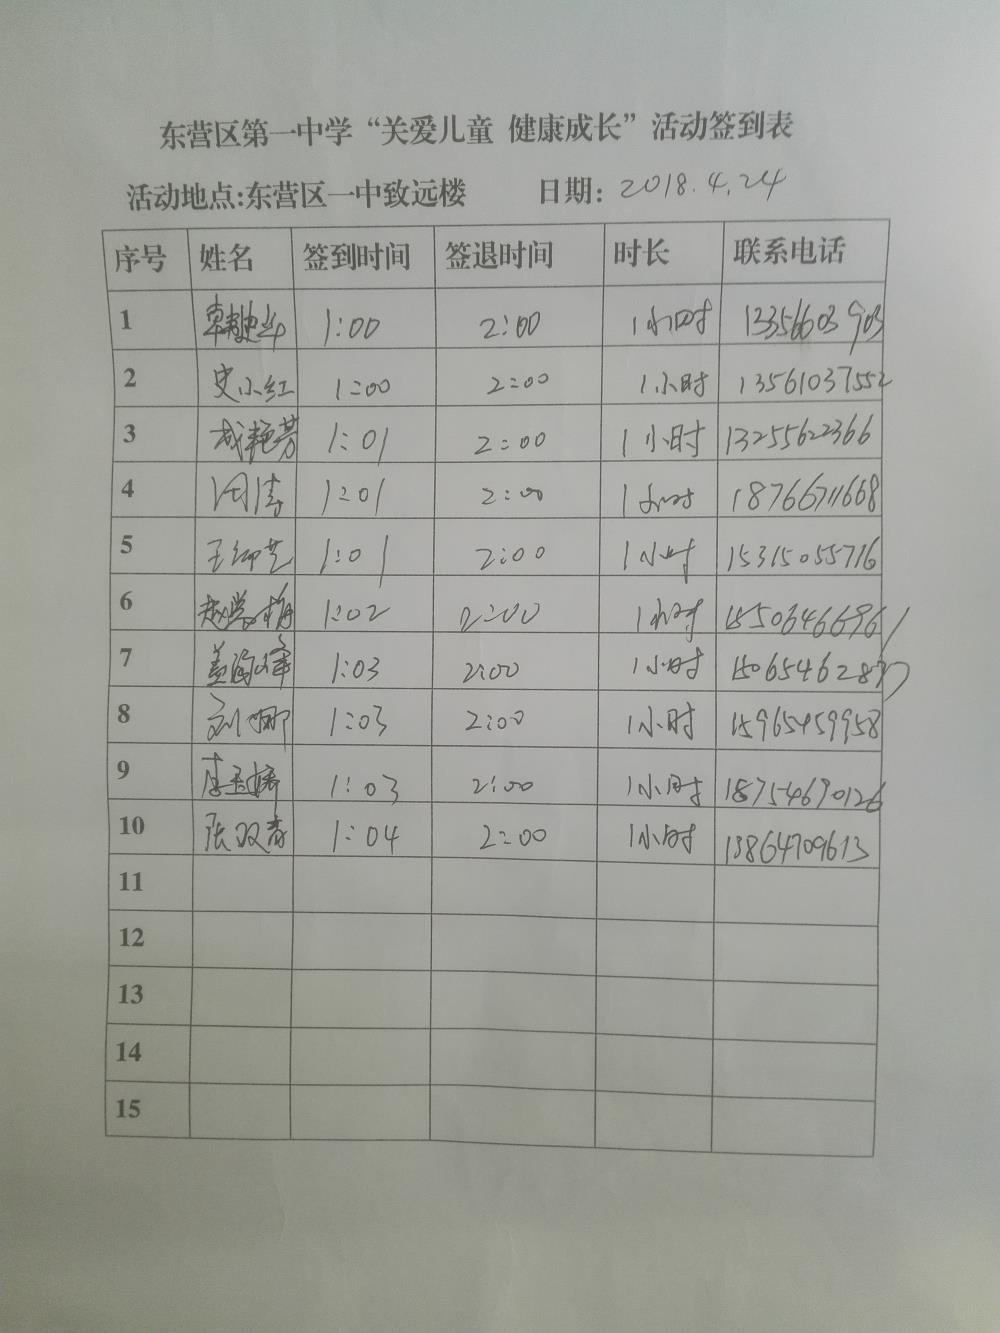 东营区第一中学“关爱儿童 健康成长”活动签到表
活动地点:东营区一中致远楼 日期: 2018.4.24
序号 姓名 签到时间 签退时间 时长 联系电话
1 1:00 2:00 1小时 13356603903
2 史小红 1:00 2:00 1小时 13561037552
3 成艳芳 1:01 2:00 1小时 13255622366
4 周涛 1:01 2:00 1小时 18766711668
5 1:01 2:00 1小时 15315055716
6 赵学梅 1:02 2:00 1小时 15506466961
7 1:03 2:00 1小时 15065462877
8 刘娜 1:03 2:00 1小时 15965459958
9 1:03 2:00 1小时 18754670126
10 张双春 1:04 2:00 1小时 13864709613
11
12
13
14
15